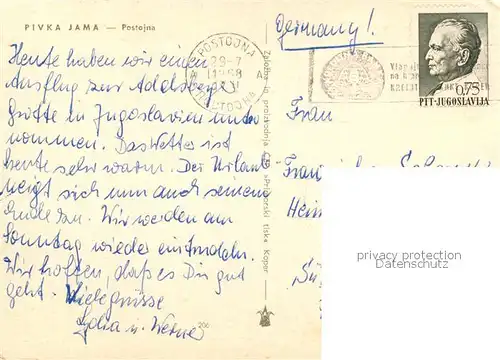 PIVKA JAMA — Postojna
Heute haben wir einen
Ausflug zur Adelsberger
Grotte in Jugoslavien unter
nommen. Das Wetter ist
heute sehr warm. Der Urlaub
neigt sich nun auch seinem
Ende zu. Wir werden am
Sonntag wieder eintrudeln.
Wir hoffen, daß es Dir gut
geht. Viele Grüsse
Lydia u. Werner
206
Založila in
tiska Koper
POSTOJNA
29-7
1968
A
POSTOJNA
Germany!
0,75
PTT-JUGOSLAVIJA
Frau
privacy protection
Datenschutz